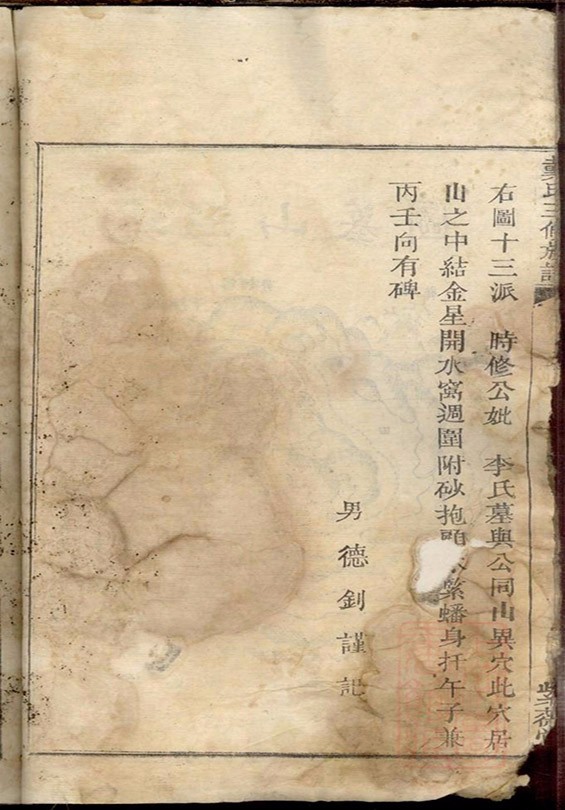 氏三修族譜
右圖十三派 時修公妣 李氏墓與公同山異穴此穴居
山之中結金星開水窩週圍附砂抱 縈蟠身扦午子兼
丙壬向有碑
男德釗謹記